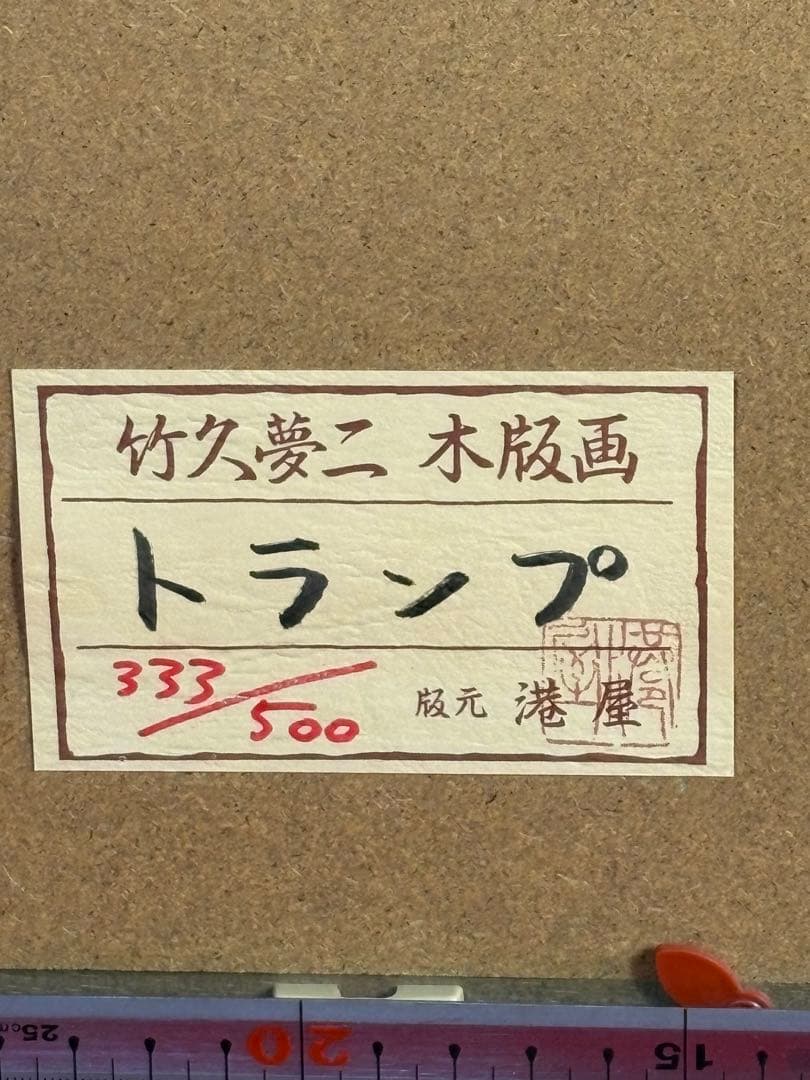 竹久夢二 木版画
トランプ
333/500
版元 港屋
25cm 20 15